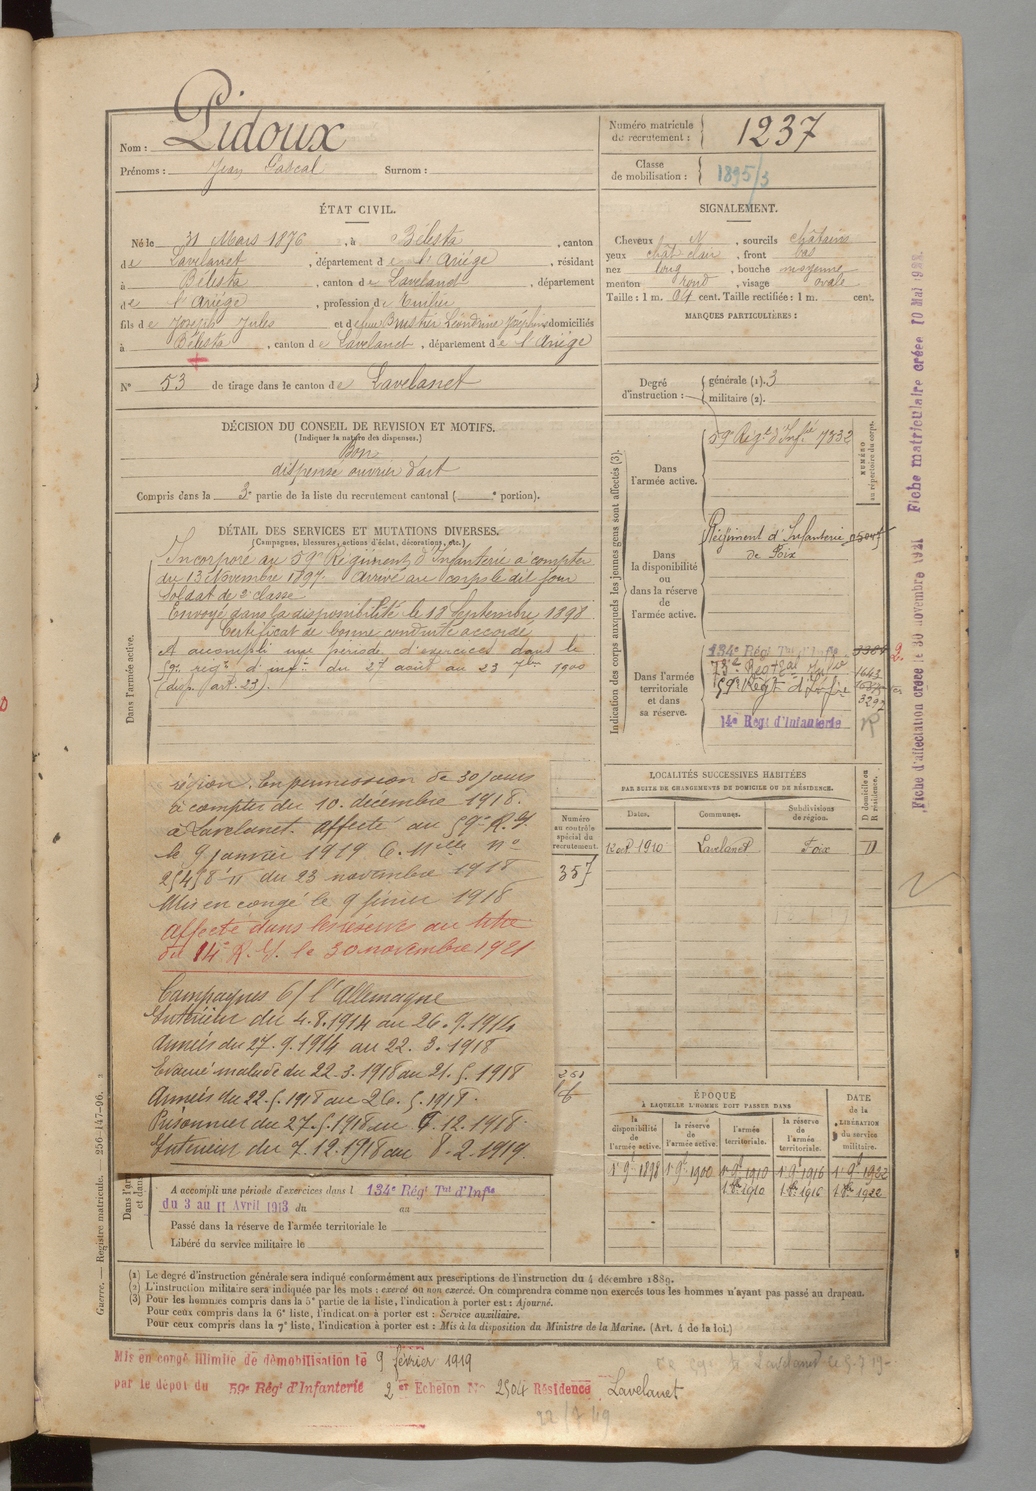 Nom : Pidoux
Prénoms : Jean Pascal Surnom :
Numéro matricule du recrutement : 1237
Classe de mobilisation : 1895/3
ÉTAT CIVIL.
Né le 31 Mars 1876, à Bélesta, canton
de Lavelanet, département de l'Ariège, résidant
à Bélesta, canton de Lavelanet, département
de l'Ariège, profession de
fils de Joseph Jules et de feue Léondrine Joséphine domiciliés
à Bélesta, canton de Lavelanet, département de l'Ariège
N° 53 de tirage dans le canton de Lavelanet
SIGNALEMENT.
Cheveux N, sourcils châtains
yeux chât clair, front bas
nez long, bouche moyenne
menton rond, visage ovale
Taille : 1 m. 64 cent. Taille rectifiée : 1 m. cent.
MARQUES PARTICULIÈRES :
Degré d'instruction : générale (1). 3
militaire (2).
DÉCISION DU CONSEIL DE REVISION ET MOTIFS.
(Indiquer la nature des dispenses.)
Bon
dispense ouvrier d'art
Compris dans la 3e partie de la liste du recrutement cantonal ( e portion).
DÉTAIL DES SERVICES ET MUTATIONS DIVERSES.
(Campagnes, blessures, actions d'éclat, décorations, etc.)
Dans l'armée active.
Incorporé au 59e Régiment d'Infanterie à compter
du 13 Novembre 1897. Arrivé au corps le dit jour
Soldat de 2e classe
Envoyé dans la disponibilité le 18 Septembre 1898
Certificat de bonne conduite accordé
A accompli une période d'exercices dans le
59e regt d'infie du 27 août au 23 7bre 1900
(disp. art. 23).
région. En permission de 30 jours
à compter du 10 décembre 1918.
à Lavelanet. Affecté au 59e R.I.
le 9 janvier 1919 C. Mlle no
du 23 novembre 1918
Mis en congé le 9 février 1918
Affecté dans les réserves au titre
du 14e R.I. le 30 novembre 1921
Campagnes c/ l'Allemagne
Intérieur du 4.8.1914 au 26.9.1914
Armées du 27.9.1914 au 22.3.1918
Evacué malade du 22.3.1918 au 21.5.1918
Armées du 22.5.1918 au 26.5.1918.
Prisonnier du 27.5.1918 au 6.12.1918
Intérieur du 7.12.1918 au 8.2.1919.
Numéro au contrôle spécial du recrutement.
357
Indication des corps auxquels les jeunes gens sont affectés (3).
NUMÉRO au répertoire du corps.
Dans l'armée active.
59e Regt d'Infie 7332
Dans la disponibilité ou dans la réserve de l'armée active.
Régiment d'Infanterie
de Foix
Dans l'armée territoriale et dans sa réserve.
134e Régt Tal d'Infie
1643
59e Régt d'Infie
3292
14e Régt d'Infanterie
LOCALITÉS SUCCESSIVES HABITÉES
PAR SUITE DE CHANGEMENTS DE DOMICILE OU DE RÉSIDENCE.
Dates. Communes. Subdivisions de région. D domicile ou R résidence.
1910 Lavelanet Foix D
ÉPOQUE
À LAQUELLE L'HOMME DOIT PASSER DANS
DATE de la LIBÉRATION du service militaire.
la disponibilité de l'armée active. la réserve de l'armée active. l'armée territoriale. la réserve de l'armée territoriale.
1er 9bre 1898 1er 9bre 1900 1er 9bre 1910 1er 9bre 1916 1er 9bre 1922
1910 1916 1922
A accompli une période d'exercices dans l 134e Régt Tal d'Infie
du 3 au 11 Avril 1913 du au
Passé dans la réserve de l'armée territoriale le
Libéré du service militaire le
(1) Le degré d'instruction générale sera indiqué conformément aux prescriptions de l'instruction du 4 décembre 1889.
(2) L'instruction militaire sera indiquée par les mots : exercé ou non exercé. On comprendra comme non exercés tous les hommes n'ayant pas passé au drapeau.
(3) Pour les hommes compris dans la 5e partie de la liste, l'indication à porter est : Ajourné.
Pour ceux compris dans la 6e liste, l'indication à porter est : Service auxiliaire.
Pour ceux compris dans la 7e liste, l'indication à porter est : Mis à la disposition du Ministre de la Marine. (Art. 4 de la loi.)
Mis en congé illimité de démobilisation le 9 février 1919
par le dépôt du 59e Régt d'Infanterie 2 er Echelon No 2504 Résidence Lavelanet
22/7/19
Guerre. — Registre matricule. — 256-147-96.
Fiche d'affectation créée le 30 novembre 1921 Fiche matriculaire créée 10 Mai 1922.